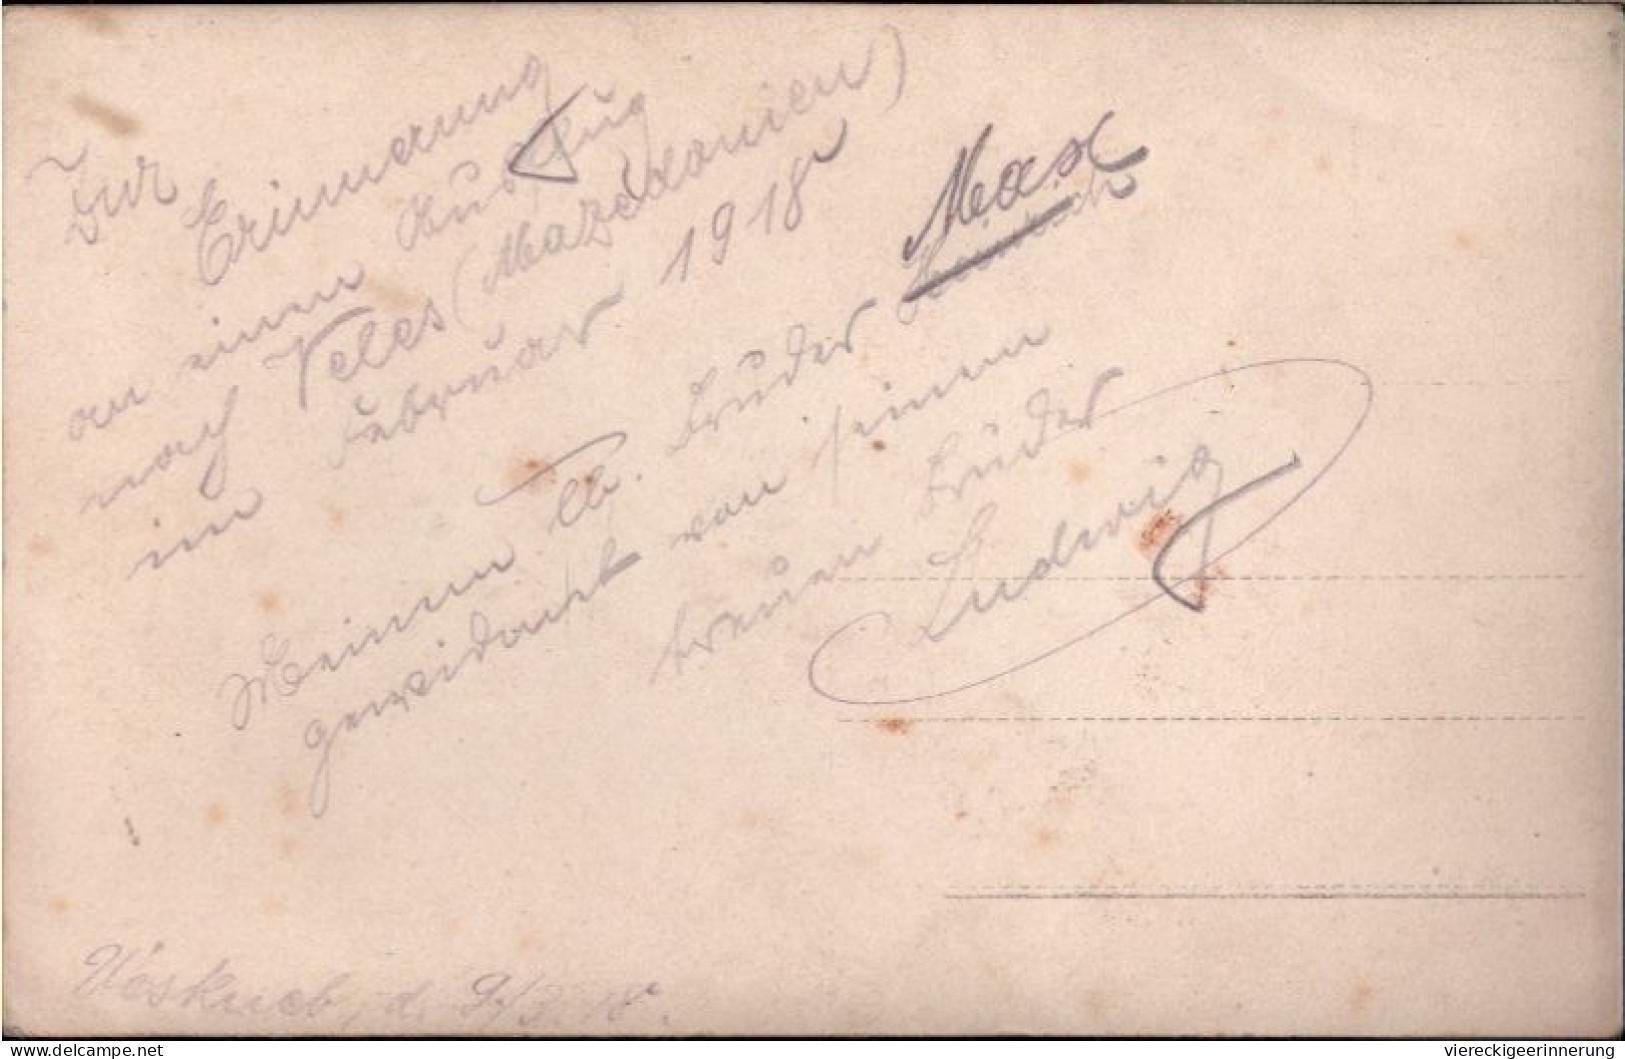 Zur
Erinnerung
an einen Ausflug
nach Veles (Mazedonien)
im Februar 1918
Meinem lb. Bruder Max
gewidmet von seinem
treuen Bruder
Ludwig
Üsküb, d. 9/3. 18.
delcampe.net
viereckigeerinnerung